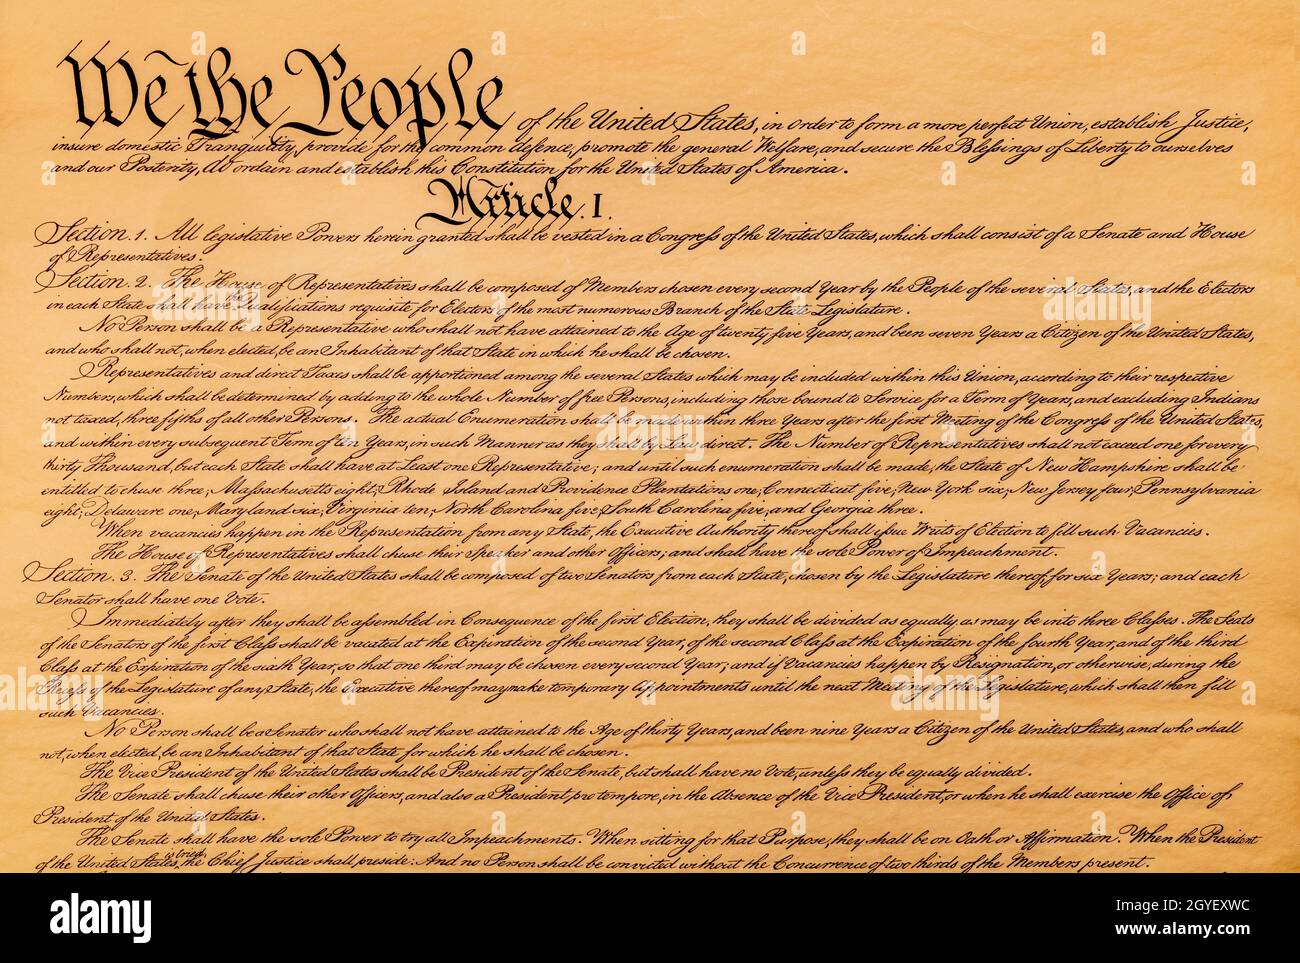 We the People of the United States, in Order to form a more perfect Union, establish Justice,
insure domestic Tranquility, provide for the common defence, promote the general Welfare, and secure the Blessings of Liberty to ourselves
and our Posterity, do ordain and establish this Constitution for the United States of America.
Article. I.
Section. 1. All legislative Powers herein granted shall be vested in a Congress of the United States, which shall consist of a Senate and House
of Representatives.
Section. 2. The House of Representatives shall be composed of Members chosen every second Year by the People of the several States, and the Electors
in each State shall have the Qualifications requisite for Electors of the most numerous Branch of the State Legislature.
No Person shall be a Representative who shall not have attained to the Age of twenty five Years, and been seven Years a Citizen of the United States,
and who shall not, when elected, be an Inhabitant of that State in which he shall be chosen.
Representatives and direct Taxes shall be apportioned among the several States which may be included within this Union, according to their respective
Numbers, which shall be determined by adding to the whole Number of free Persons, including those bound to Service for a Term of Years, and excluding Indians
not taxed, three fifths of all other Persons. The actual Enumeration shall be made within three Years after the first Meeting of the Congress of the United States,
and within every subsequent Term of ten Years, in such Manner as they shall by Law direct. The Number of Representatives shall not exceed one for every
thirty Thousand, but each State shall have at Least one Representative; and until such enumeration shall be made, the State of New Hampshire shall be
entitled to chuse three, Massachusetts eight, Rhode Island and Providence Plantations one, Connecticut five, New York six, New Jersey four, Pennsylvania
eight, Delaware one, Maryland six, Virginia ten, North Carolina five, South Carolina five, and Georgia three.
When vacancies happen in the Representation from any State, the Executive Authority thereof shall issue Writs of Election to fill such Vacancies.
The House of Representatives shall chuse their Speaker and other Officers; and shall have the sole Power of Impeachment.
Section. 3. The Senate of the United States shall be composed of two Senators from each State, chosen by the Legislature thereof, for six Years; and each
Senator shall have one Vote.
Immediately after they shall be assembled in Consequence of the first Election, they shall be divided as equally as may be into three Classes. The Seats
of the Senators of the first Class shall be vacated at the Expiration of the second Year, of the second Class at the Expiration of the fourth Year, and of the third
Class at the Expiration of the sixth Year, so that one third may be chosen every second Year; and if Vacancies happen by Resignation, or otherwise, during the
Recess of the Legislature of any State, the Executive thereof may make temporary Appointments until the next Meeting of the Legislature, which shall then fill
such Vacancies.
No Person shall be a Senator who shall not have attained to the Age of thirty Years, and been nine Years a Citizen of the United States, and who shall
not, when elected, be an Inhabitant of that State for which he shall be chosen.
The Vice President of the United States shall be President of the Senate, but shall have no Vote, unless they be equally divided.
The Senate shall chuse their other Officers, and also a President pro tempore, in the Absence of the Vice President, or when he shall exercise the Office of
President of the United States.
The Senate shall have the sole Power to try all Impeachments. When sitting for that Purpose, they shall be on Oath or Affirmation. When the President
of the United States is tried, the Chief Justice shall preside: And no Person shall be convicted without the Concurrence of two thirds of the Members present.
alamy
Image ID: 2GYEXWC
www.alamy.com